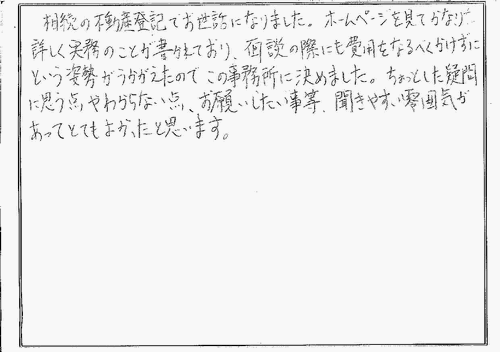 相続の不動産登記でお世話になりました。ホームページを見てかなり
詳しく実務のことが書かれており、面談の際にも費用をなるべくかけずに
という姿勢がうかがえたのでこの事務所に決めました。ちょっとした疑問
に思う点やわからない点、お願いしたい事等、聞きやすい雰囲気が
あってとてもよかったと思います。